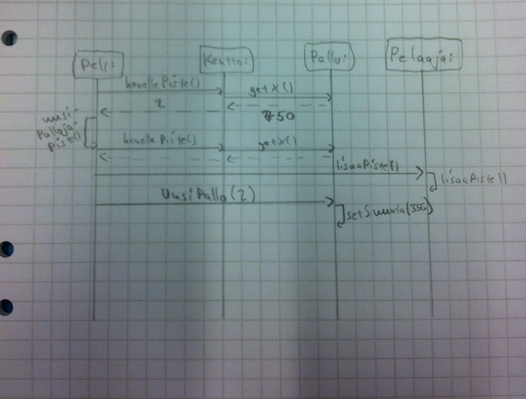 Peli:
Kenttä:
Pallo:
Pelaaja:
kenellePiste()
getX()
2
750
uusi-
Pallaja-
Piste()
kenellePiste()
getX()
lisaaPiste()
lisaaPiste()
UusiPallo(2)
setSuunta(356)